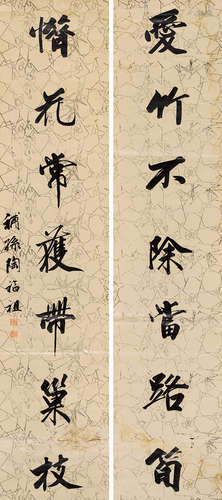 愛竹不除當路筍
惜花常護帶巢枝
補孫陶福祖